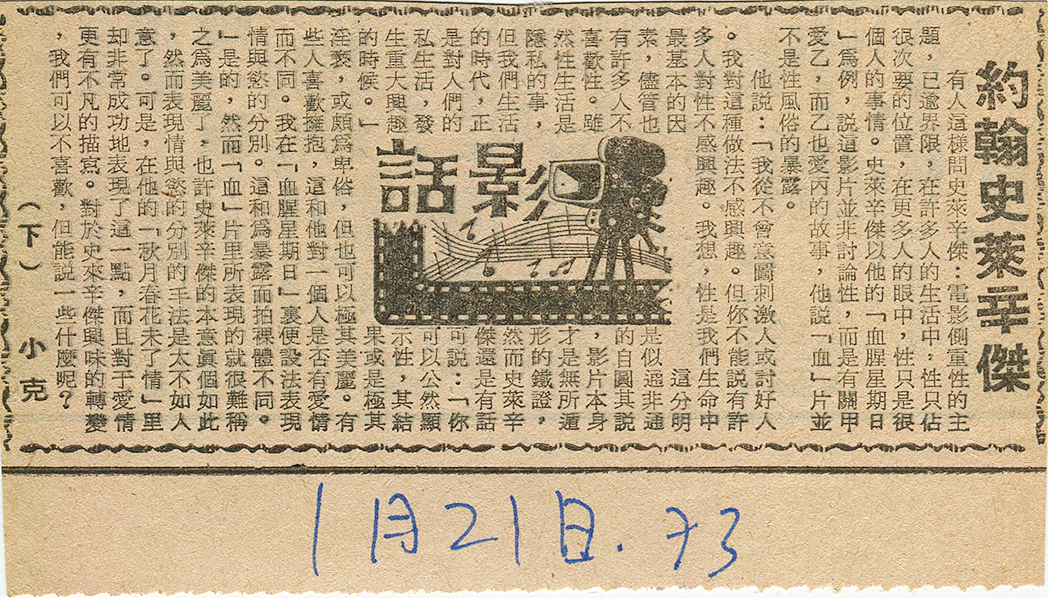 約翰史萊辛傑
有人這樣問史萊辛傑：電影側重性的主
題，已逾界限，在許多人的生活中，性只佔
很次要的位置，在更多人的眼中，性只是很
個人的事情。史萊辛傑以他的「血腥星期日
」爲例，說這影片並非討論性，而是有關甲
愛乙，而乙也愛丙的故事，他說「血」片並
不是性風俗的暴露。
他說：「我從不會意圖刺激人或討好人
。我對這種做法不感興趣。但你不能說有許
多人對性不感興趣。我想，性是我們生命中
最基本的因
素，儘管也
有許多人不
喜歡性。雖
然性生活是
隱私的事，
但我們生活
的時代，正
是對人們的
私生活，發
生重大興趣
的時候。」
影話
這分明
是似通非通
的自圓其說
，影片本身
才是無所遁
形的鐵證，
然而史萊辛
傑還是有話
可說：「你
可以公然顯
示性，其結
果或是極其
淫褻，或頗爲卑俗，但也可以極其美麗。有
些人喜歡擁抱，這和他對一個人是否有愛情
而不同。我在「血腥星期日」裏便設法表現
情與慾的分別。這和爲暴露而拍裸體不同。
」是的，然而「血」片里所表現的就很難稱
之爲美麗了，也許史萊辛傑的本意眞個如此
，然而表現情與慾的分別的手法是太不如人
意了。可是，在他的「秋月春花未了情」里
却非常成功地表現了這一點，而且對于愛情
更有不凡的描寫。對於史來辛傑興味的轉變
，我們可以不喜歡，但能說一些什麼呢？
（下） 小克
1月21日．73